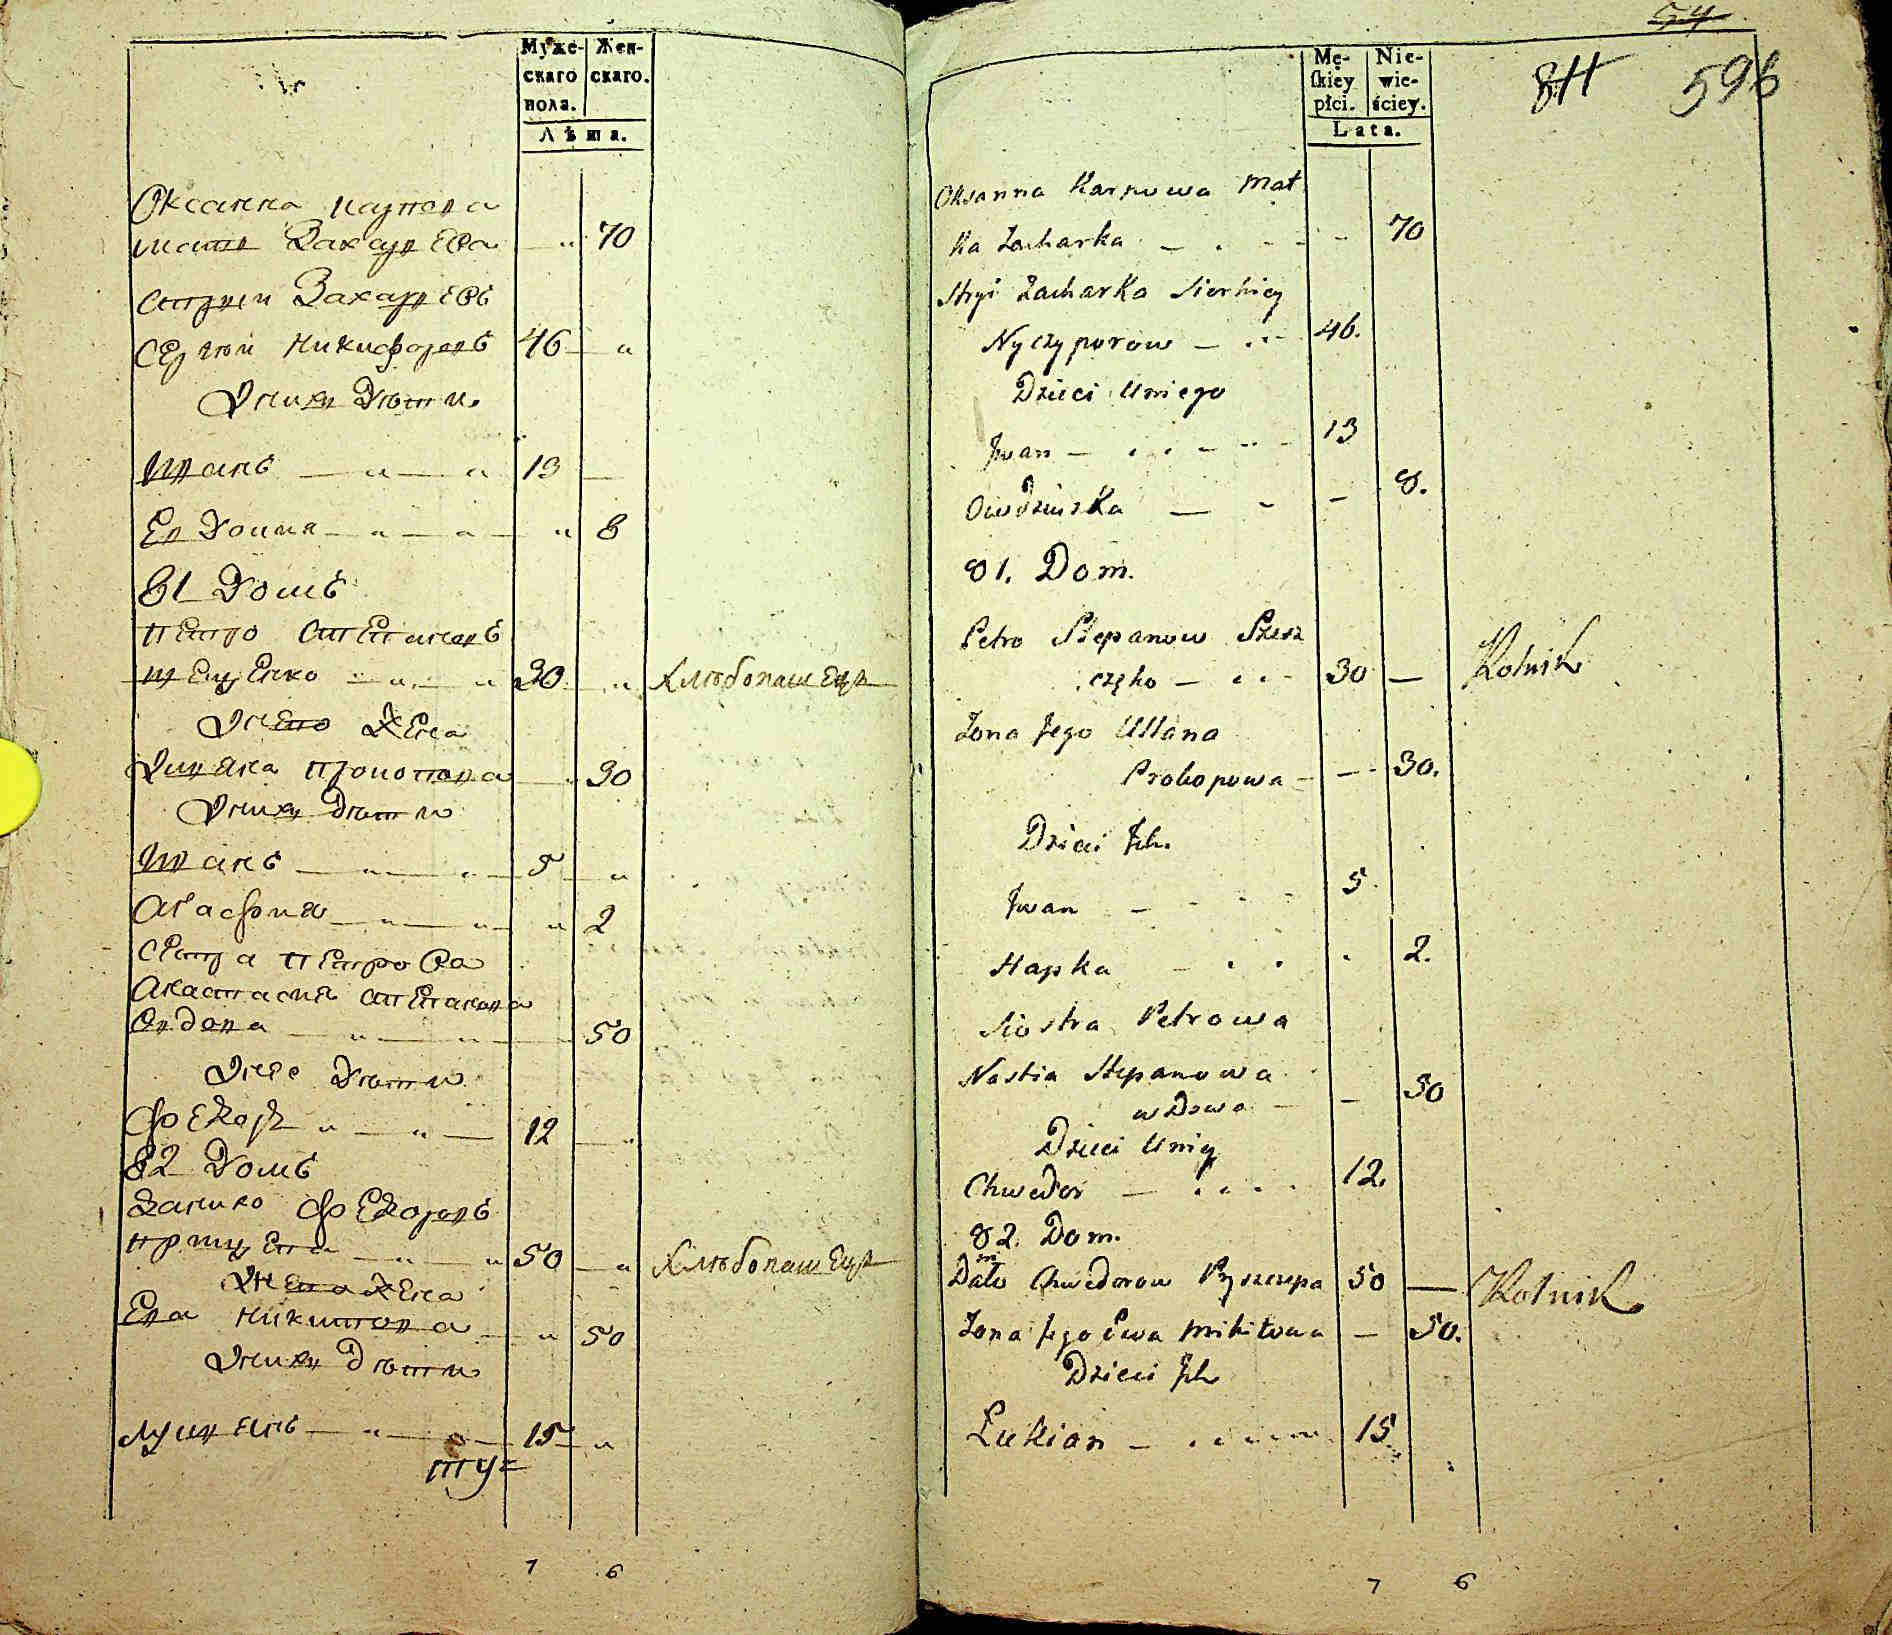 Муже-
скаго
пола.
Жен-
скаго.
Лѣта.
Оксанна Карпова
мать Захаркова 70
Стрый Захарковъ
Сергий Никифоровъ 46
У них Дѣти
Иванъ 13
Евдоция 8
81 Домъ
Петро Степановъ
30 Хлѣбопашецъ
У него Жена
Улляна Прокопова 30
У них дѣти
Иванъ 5
Агафия 2
Сестра Петрова
Анастасия Степанова
Вдова 50
У нее Дѣти
Федоръ 12
82 Домъ
Данило Федоровъ
50 Хлѣбопашецъ
У него Жена
Ева Никитова 50
У них дѣти
Лукиянъ 15
7 6
54
Mę-
skiey
płci.
Nie-
wie-
ściey.
Lata.
84 596
Oksanna Karpowa Mat
ka Zacharka 70
Stryi Zacharka Sierhiey
Nyczyporow 46.
Dzieci Uniego
Jwan 13
Owdziuszka 8.
81. Dom.
Petro Stepanow Szesz
częko 30 — Rolnik
Zona Jego Ullana
Prokopowa 30.
Dzieci Jch.
Jwan 5
Hapka 2.
Siostra Petrowa
Nastia Stepanowa
wdowa 50
Dzieci Uniey
Chwedor 12.
82. Dom.
Chwedorow Pryszczepa 50 — Rolnik
Zona Jego Ewa Mikitowa — 50.
Dzieci Jch
Łukian 15
7 6